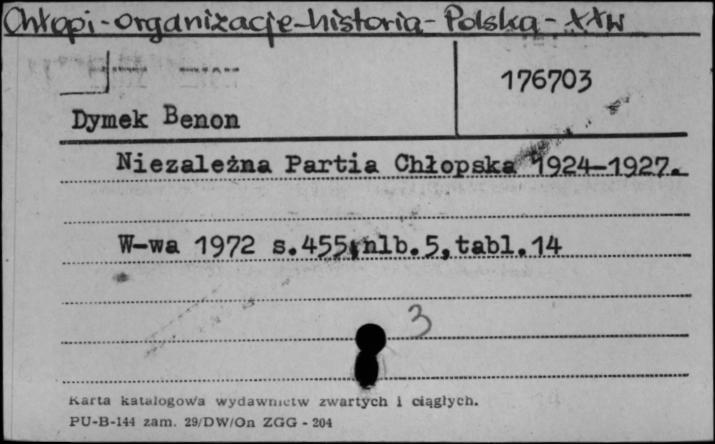 Chłopi-organizacje-historia-Polska-XXw
176703
Dymek Benon
Niezależna Partia Chłopska 1924-1927.
W-wa 1972 s.455,nlb.5,tabl.14
3
Karta katalogowa wydawnictw zwartych i ciągłych.
PU-B-144 zam. 29/DW/On ZGG - 204